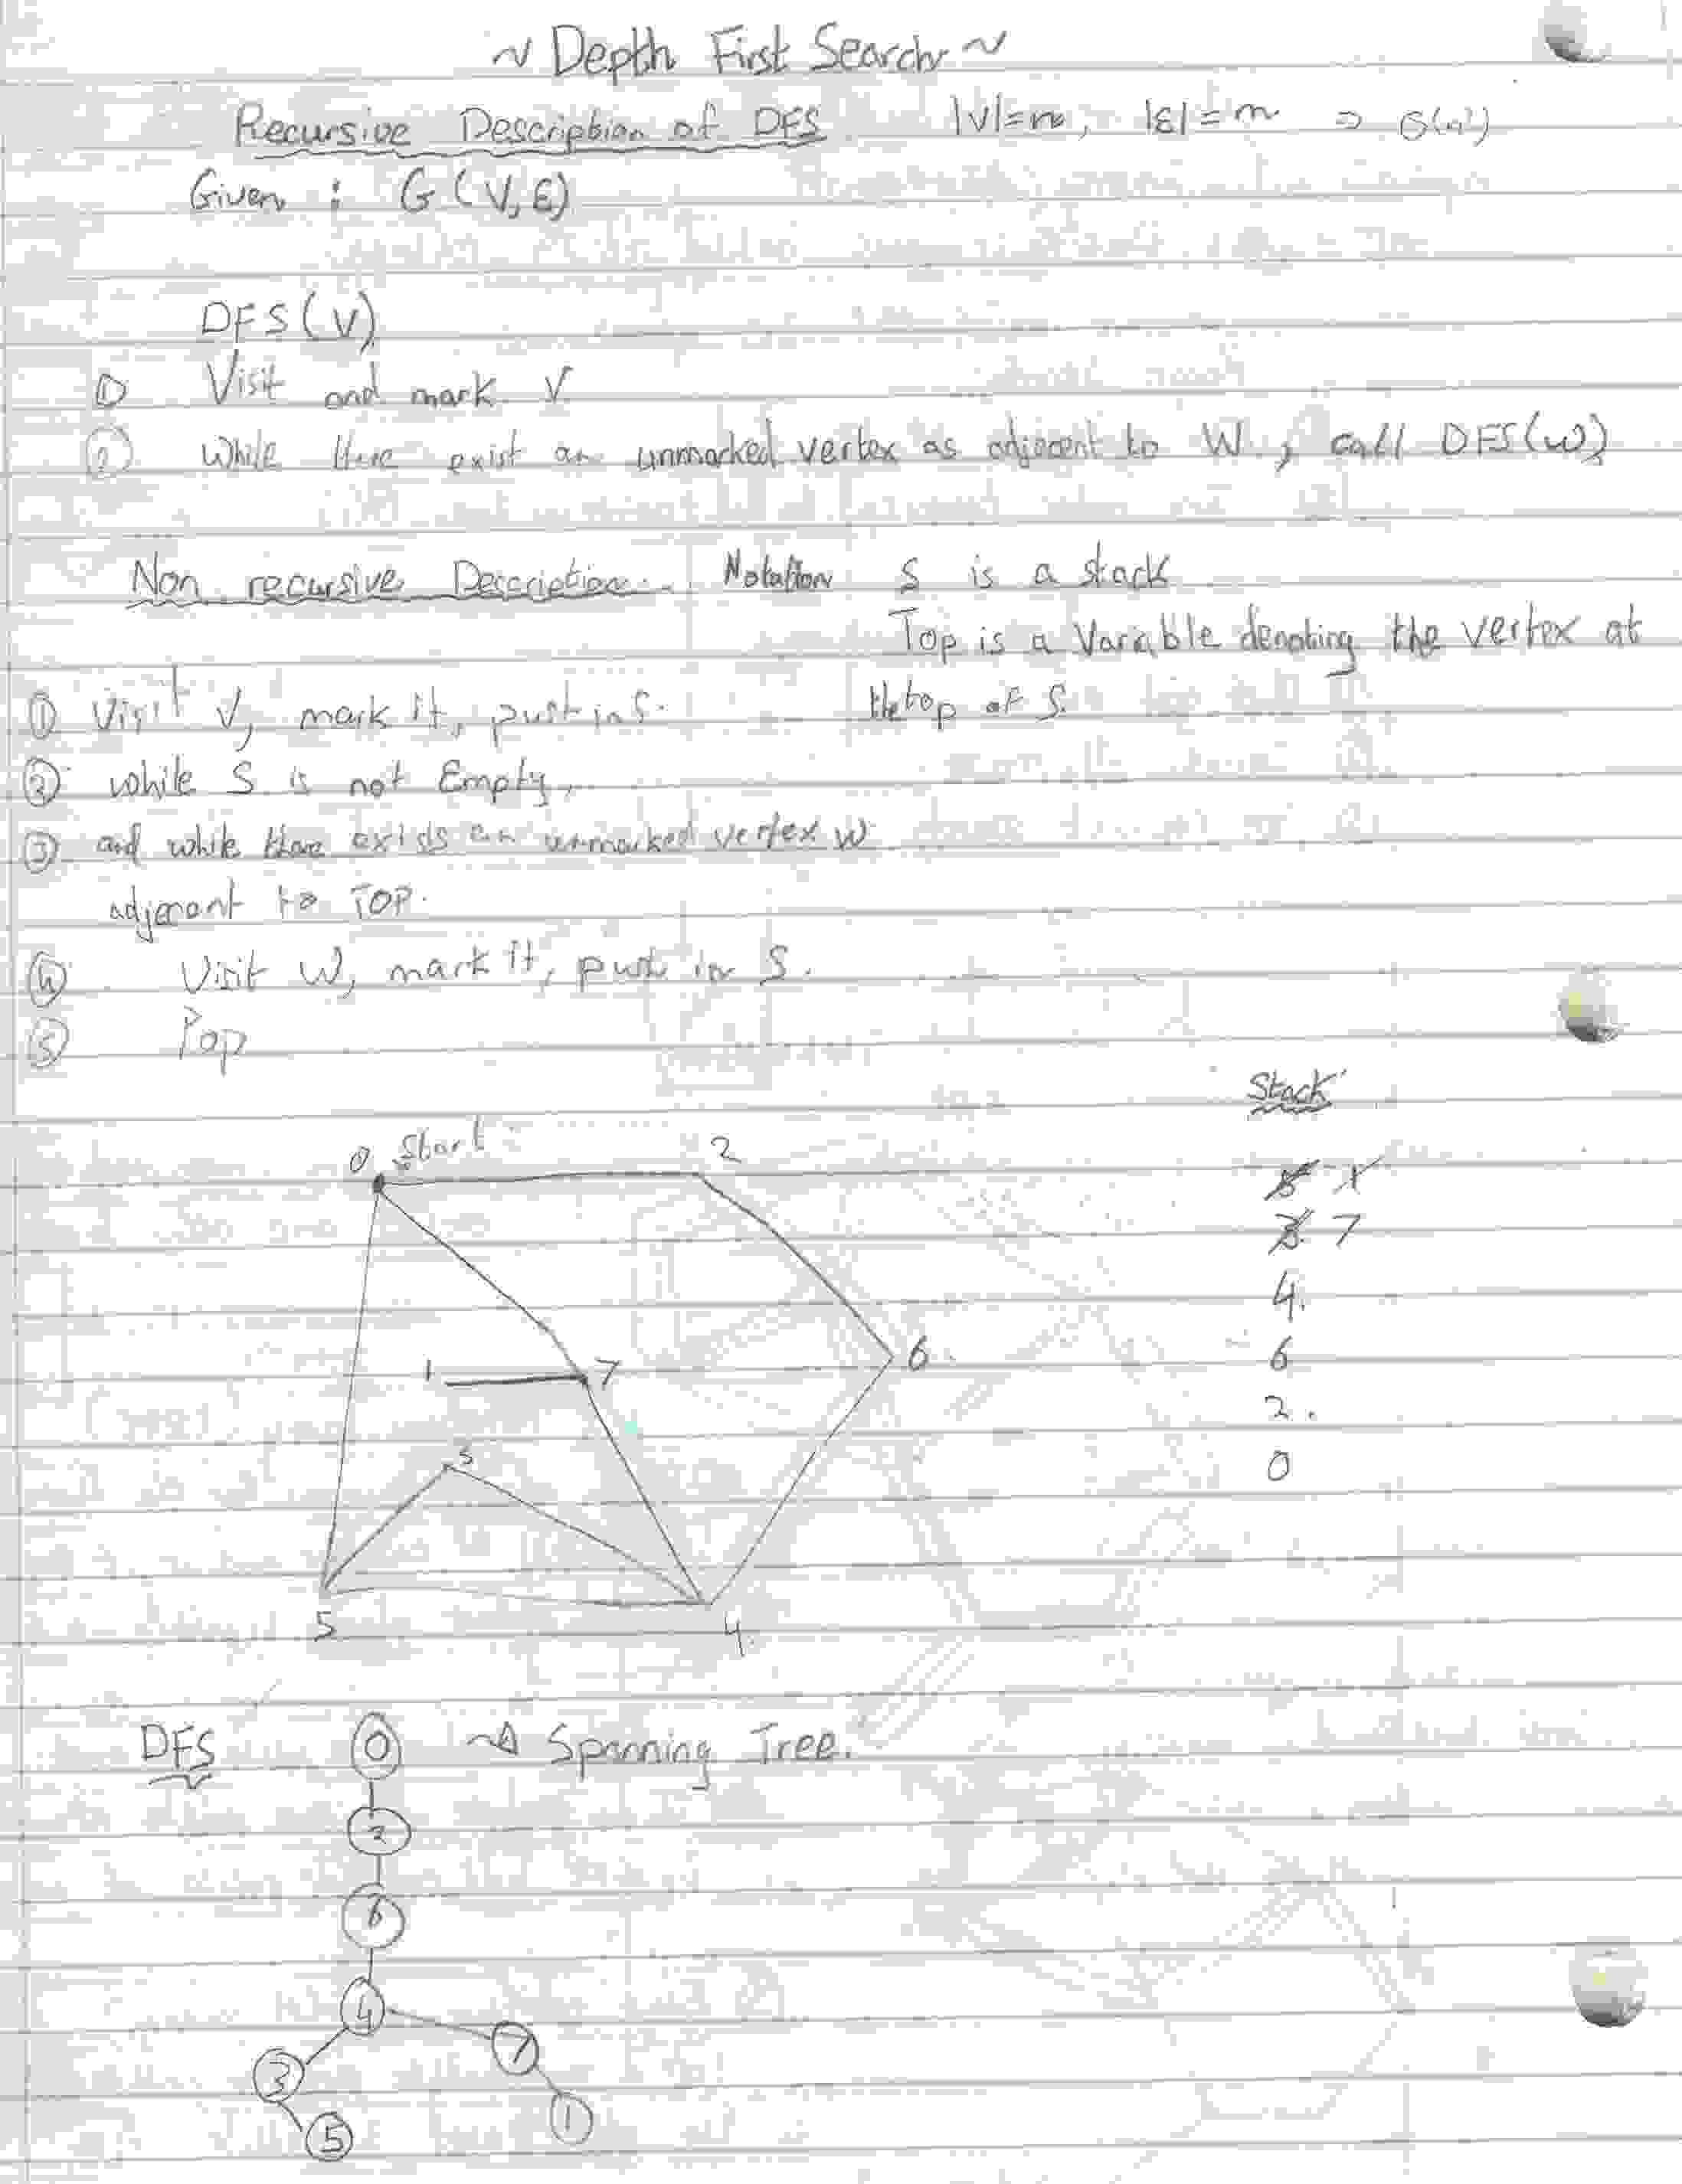 ~ Depth First Search ~
Recursive Description of DFS |V|=n, |E|=m ⇒ O(n²)
Given : G(V,E)
DFS(V)
① Visit and mark V
② While there exist an unmarked vertex as adjacent to W, call DFS(W)
Non recursive Description. Notation S is a stack
Top is a Variable denoting the vertex at
the top of S.
① Visit V, mark it, push in S.
② while S is not Empty,
③ and while there exists an unmarked vertex W
adjacent to TOP.
④ Visit W, mark it, push in S.
⑤ Pop
Stack
0 Start 2
5 1
3 7
4.
1 7 6
6
2.
3
0
5 4
DFS 0 Spanning Tree.
2
6
4
7
3
1
5